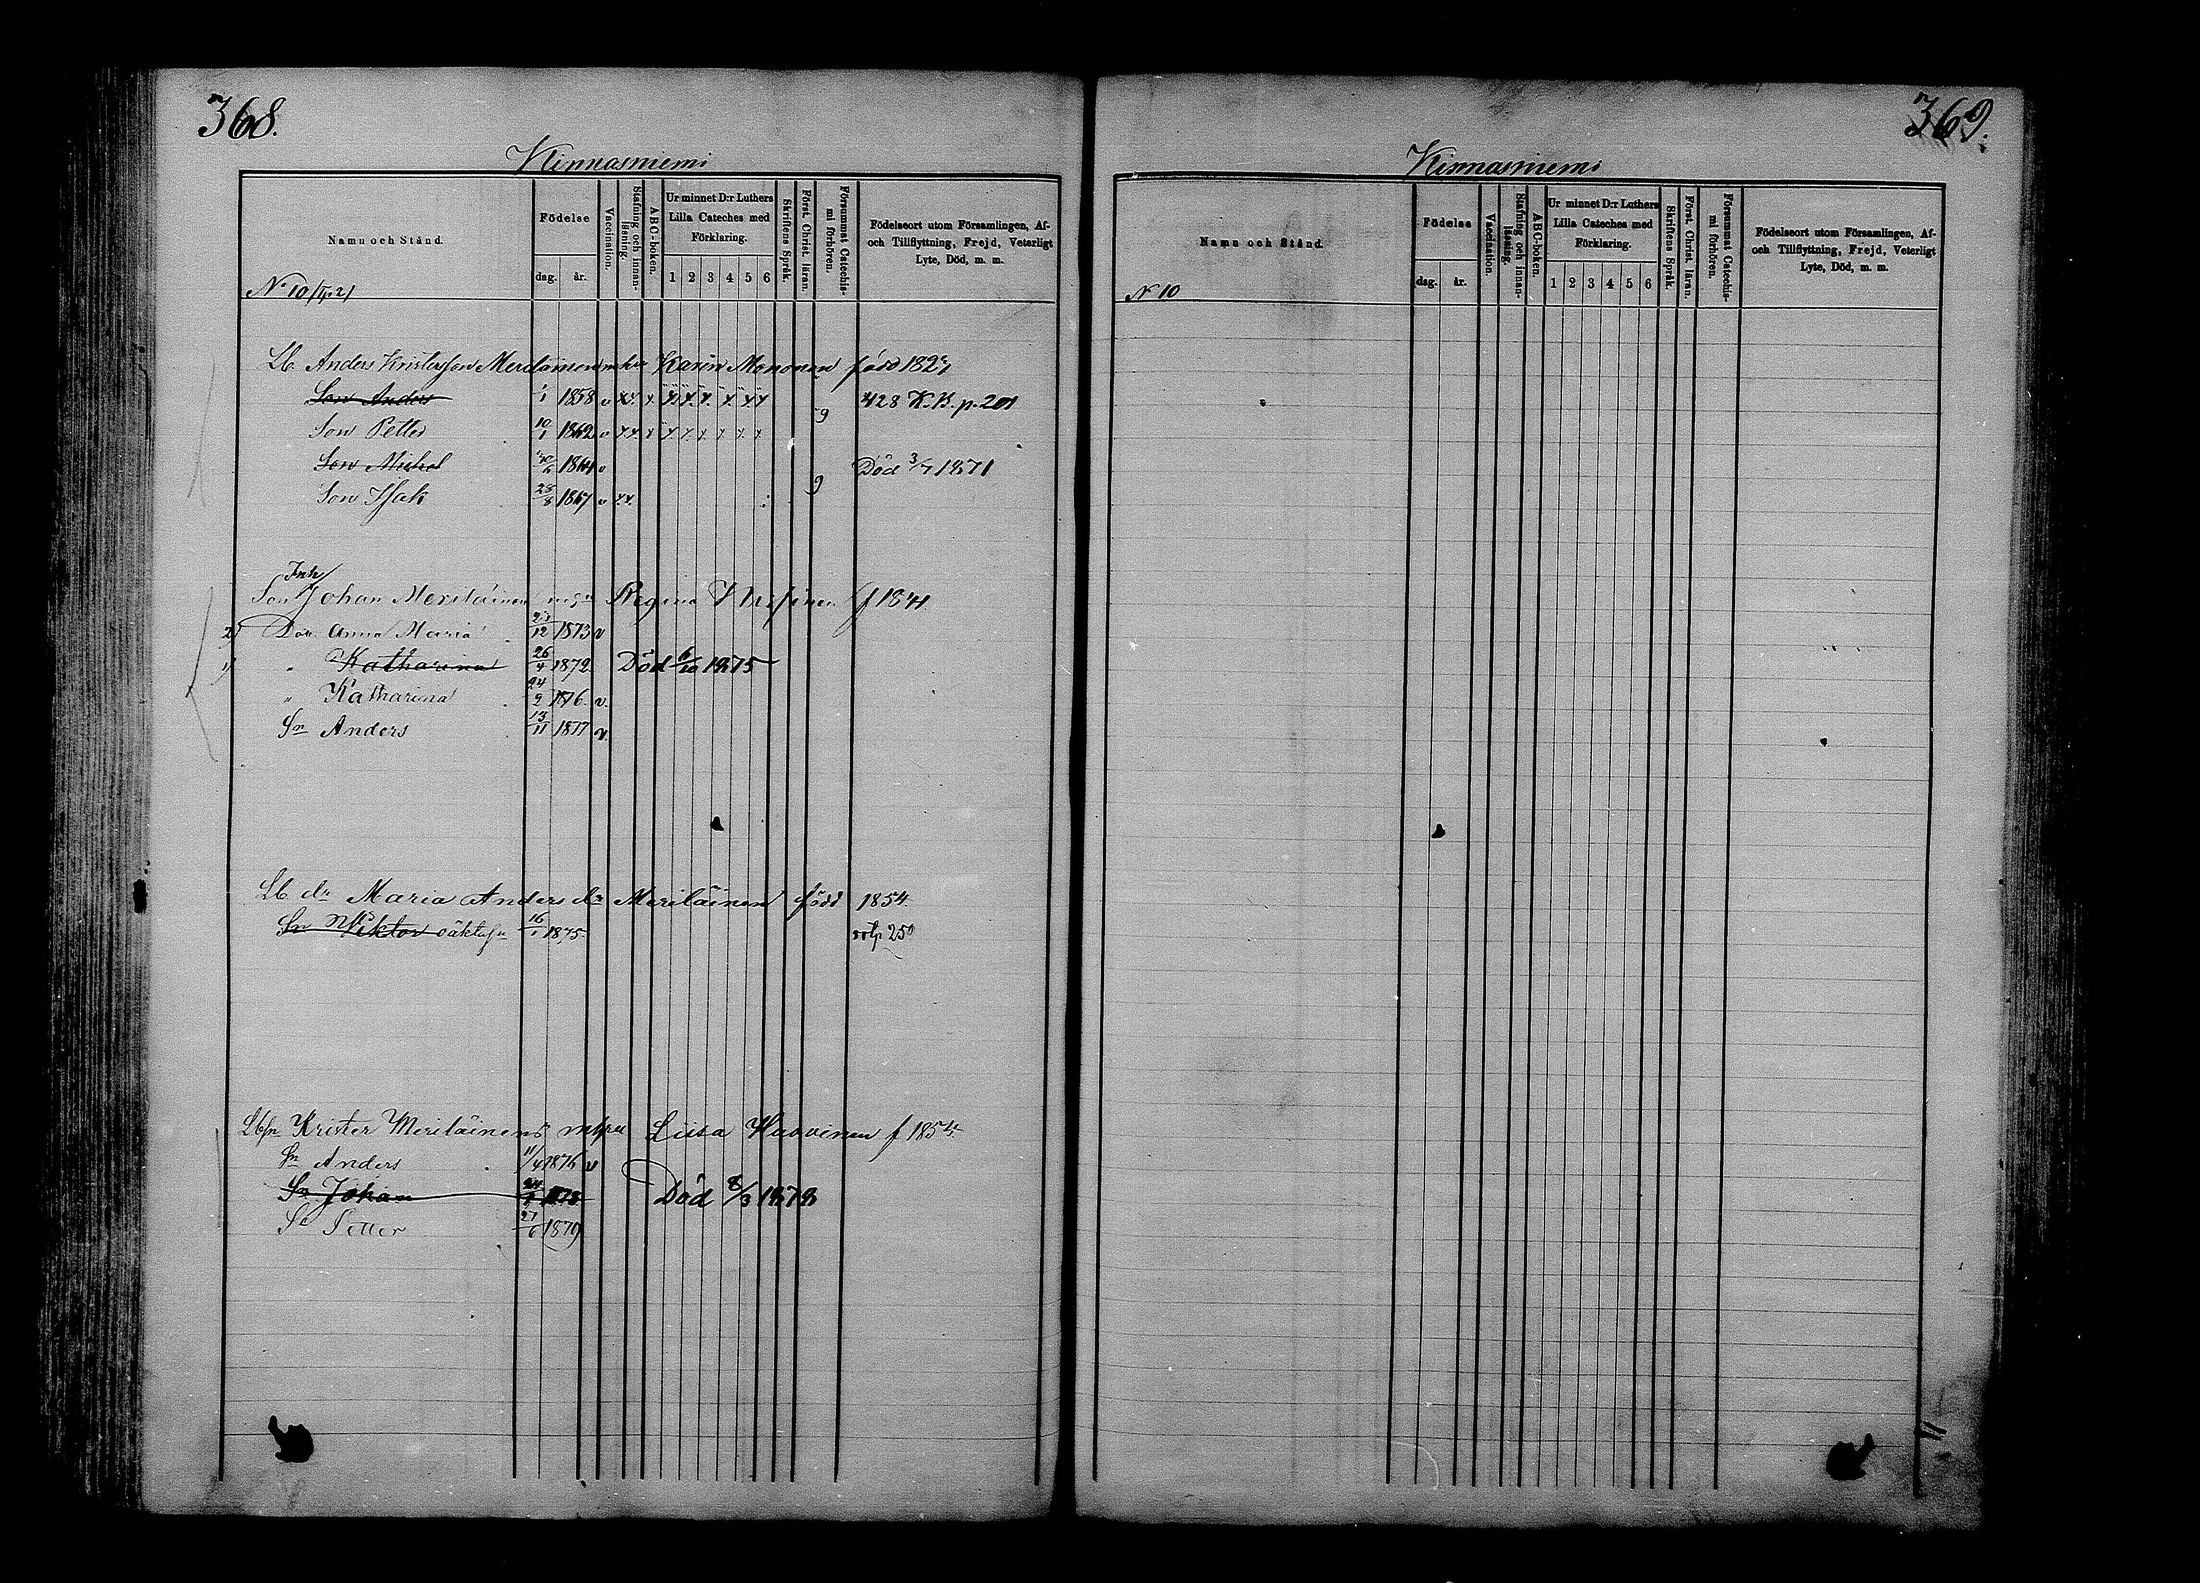 368.
Kinnasniemi
Namn och Stånd.
Födelse
dag. år.
Vaccination.
Stafning och innanläsning.
ABC-boken.
Ur minnet D:r Luthers Lilla Cateches med Förklaring.
1 2 3 4 5 6
Skriftens Språk.
Först. Christ. läran.
Försummat Catechismi förhören.
Födelseort utom Församlingen, Af- och Tillflyttning, Frejd, Veterligt Lyte, Död, m. m.
N 10
Lb. Anders Meriläinen Karin Mononen född
Son Anders 1858 v 428 K.B. p. 201
Son Petter 10/1 1862 v
Son Michel 1864 v Död 3/7 1871
Son Isak 28/8 1867 v
Inh
Son Johan Meriläinen Regina f 1841.
2) Anna Maria 12 1873 v
1) " Katharina 26/4 1872 Död 6/10 1875
" Katharina 24/9 1876. v.
Sn Anders 13/11 1877 v.
Lb dr Maria Anders dr Meriläinen född 1854.
Sn Wiktor oäkta 16/1 1875.
Lbsn Krister Meriläinens Liisa f
Sn Anders 11/4 1876 v
Sn Johan Död 8/3 1878
Sn Petter 27/6 1879
369.
Kinnasniemi
Namn och Stånd.
Födelse
dag. år.
Vaccination.
Stafning och innanläsning.
ABC-boken.
Ur minnet D:r Luthers Lilla Cateches med Förklaring.
1 2 3 4 5 6
Skriftens Språk.
Först. Christ. läran.
Försummat Catechismi förhören.
Födelseort utom Församlingen, Af- och Tillflyttning, Frejd, Veterligt Lyte, Död, m. m.
N 10